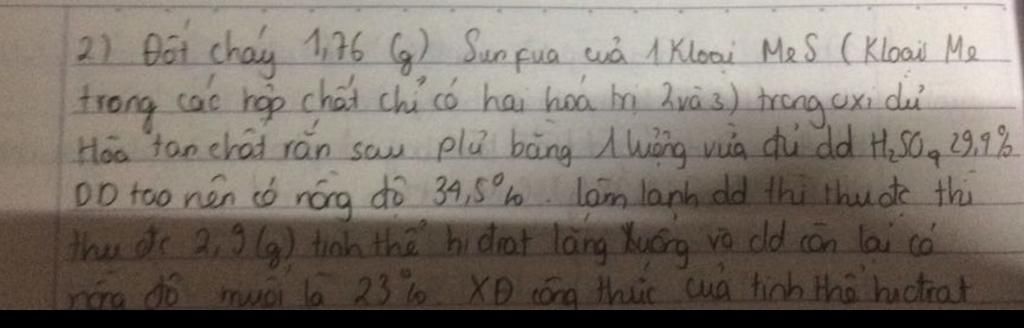 2) Đốt cháy 1,76 (g) Sunfua của 1 Kloại MeS (Kloại Me
trong các hợp chất chỉ có hai hoá trị 2 và 3) trong oxi dư
Hòa tan chất rắn sau pư bằng 1 lượng vừa đủ dd H₂SO₄ 29,4%
DD tạo nên có nồng độ 34,5%. làm lạnh dd thì thu đc thì
thu đc 2,9(g) tinh thể hiđrat lắng xuống và dd còn lại có
nồng độ muối là 23%. XĐ công thức của tinh thể hiđrat